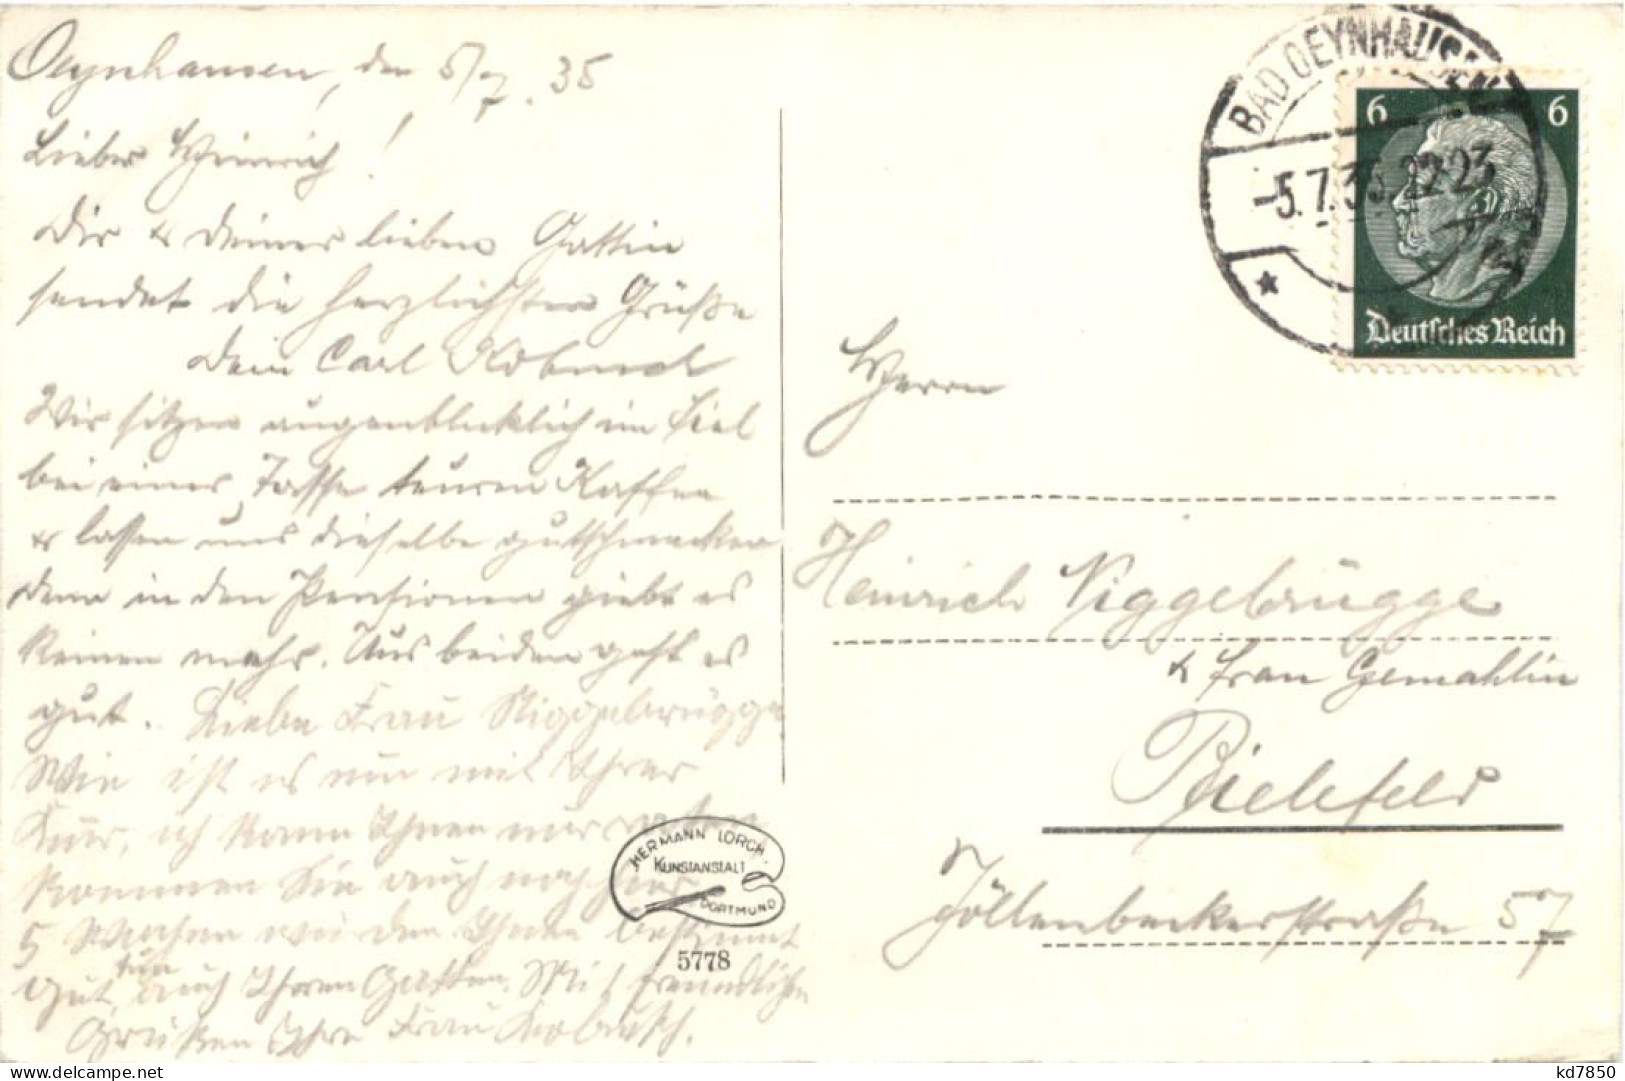 Oeynhausen, den 5/7. 35
Lieber Heinrich!
Dir & deiner lieben Gattin
sendet die herzlichsten Grüße
Dein Carl
Wir sitzen augenblicklich im Siel
bei einer Tasse teuren Kaffee
& lassen uns dieselbe gutschmecken
denn in den Pensionen giebt es
keinen mehr. Uns beiden geht es
gut. Liebe Frau Niggebrügge
Wie ist es nun mit Ihrer
Kur, ich kann Ihnen nur
kommen Sie auch noch her
5 Wochen
gut tun auch Ihrem Gatten. Mit freundlichen
Grüßen Ihre Frau
BAD OEYNHAUSEN
-5.7.35.22-23
6 6
Deutsches Reich
Herrn
Heinrich Niggebrügge
& Frau Gemahlin
Bielefeld
Jöllenbeckerstraße 57
HERMANN LORCH
KUNSTANSTALT
DORTMUND
5778
kd7850